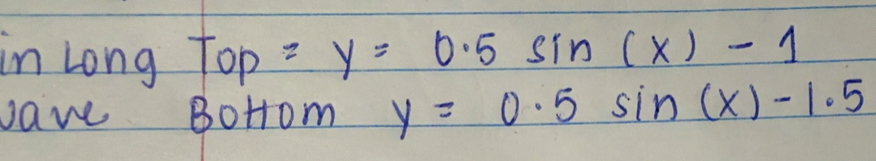 in Long Top = y = 0.5 sin (x) - 1
Bottom y = 0.5 sin (x) - 1.5